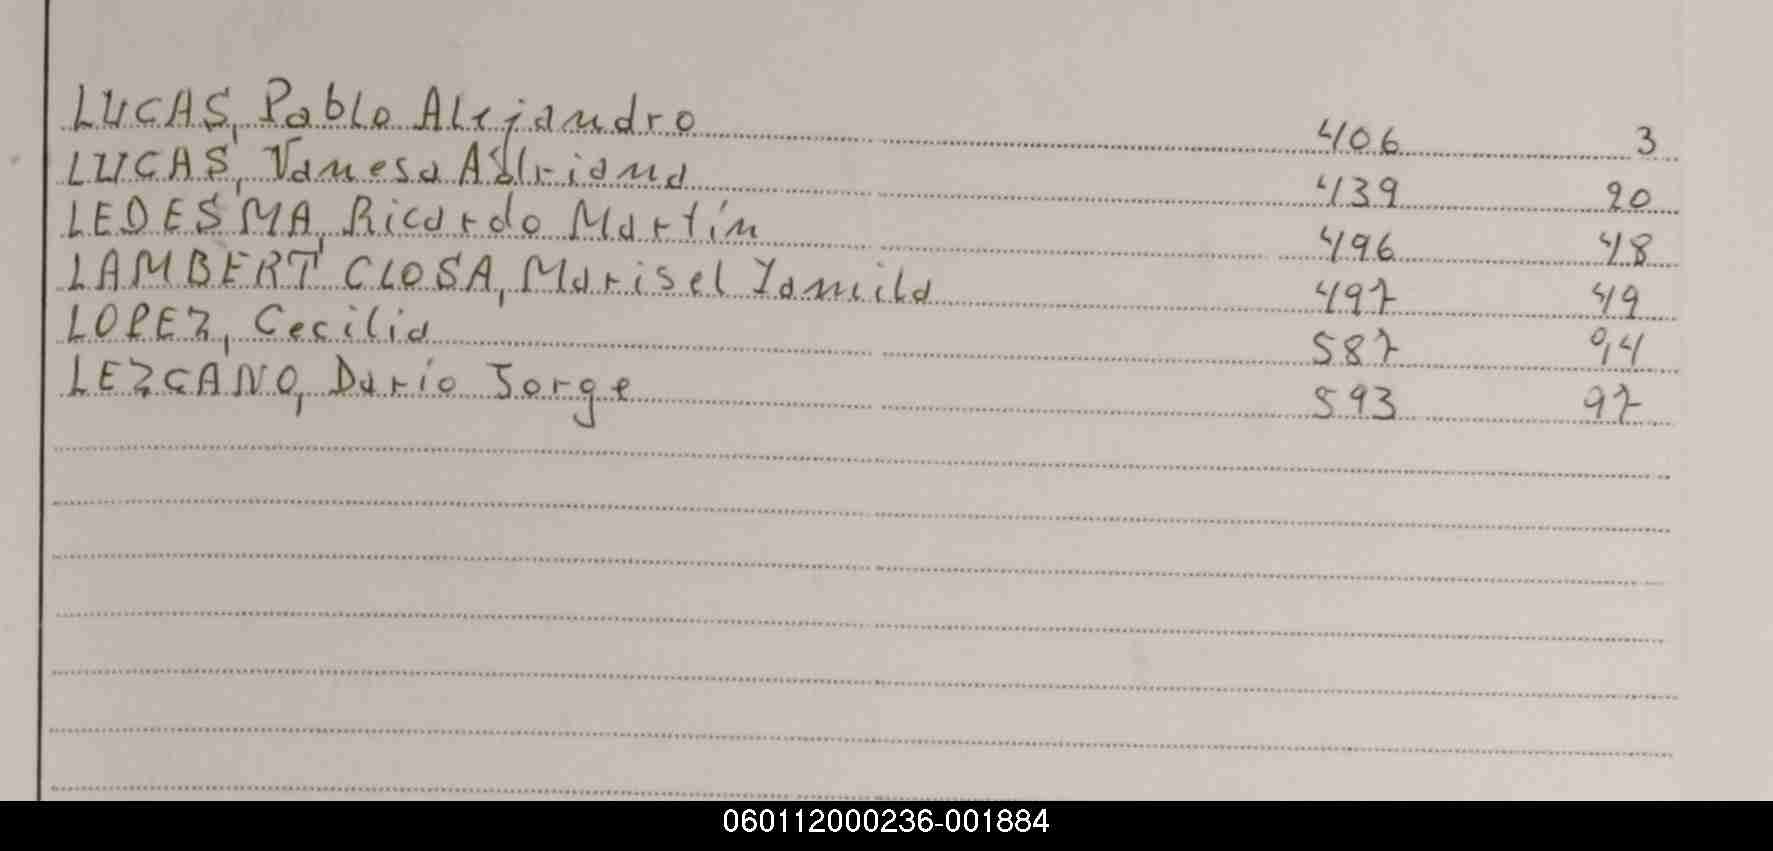 LUCAS, Pablo Alejandro 406 3
LUCAS, Vanesa Adriana 439 20
LEDESMA, Ricardo Martín 496 48
LAMBERT CLOSA, Marisel Yamila 497 49
LOPEZ, Cecilia 587 94
LEZCANO, Darío Jorge 593 97
060112000236-001884